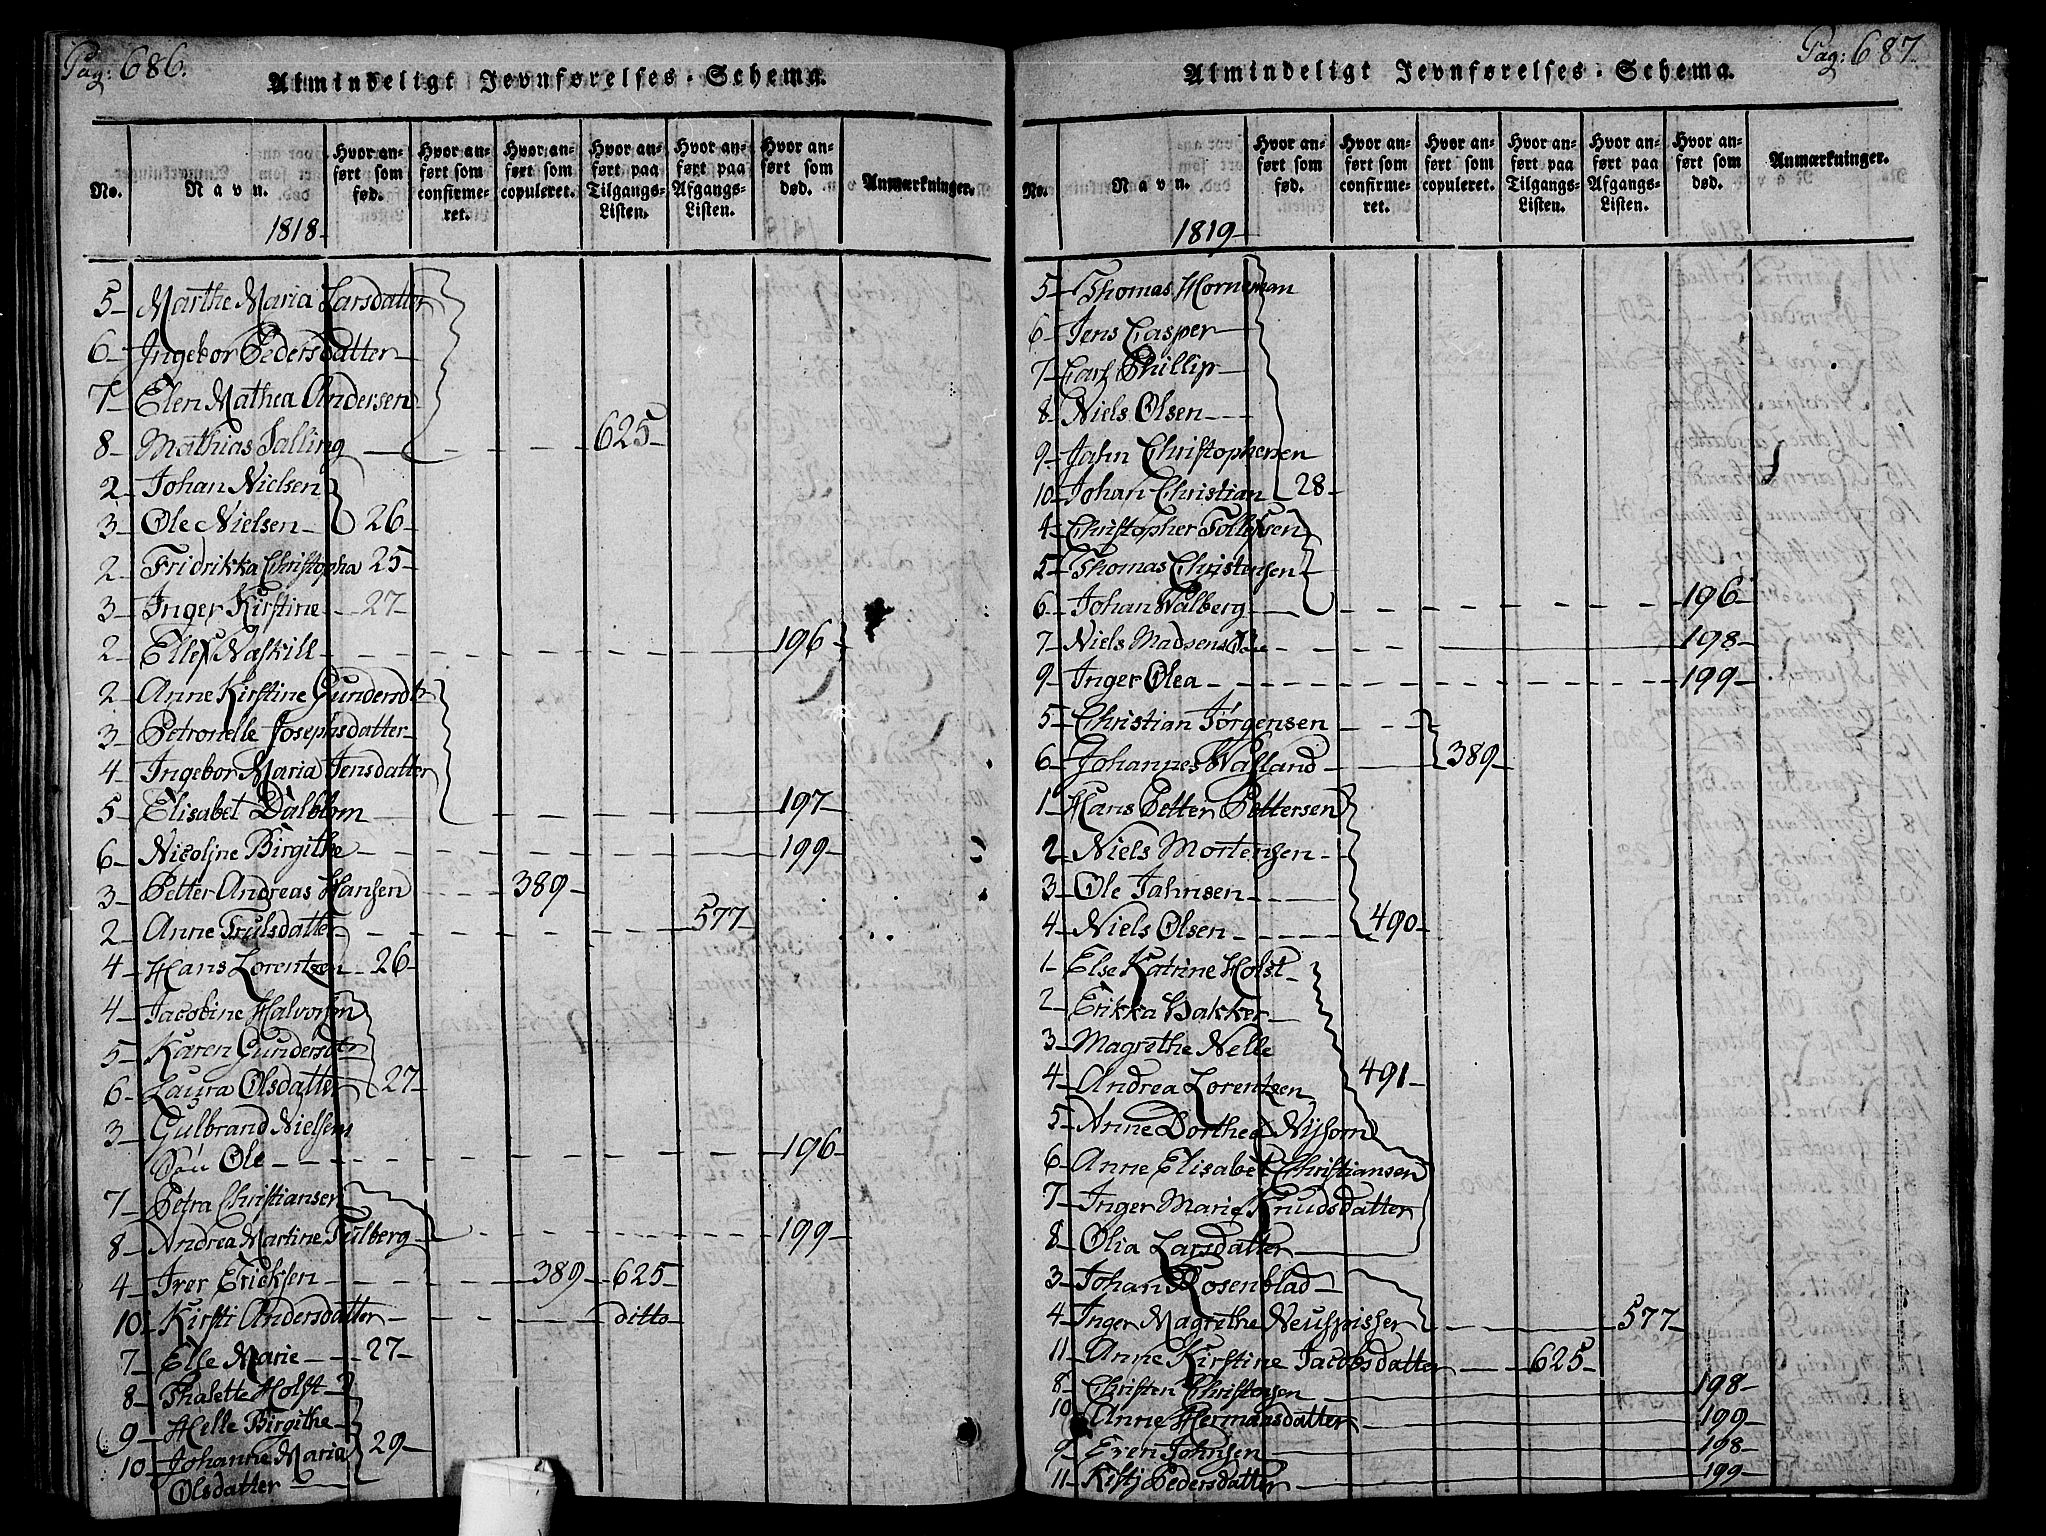 Pag: 686.
Almindeligt Jevnførelses-Schema.
No. Navn. Hvor anført som fød. Hvor anført som confirmeret. Hvor anført som copuleret. Hvor anført paa Tilgangs-Listen. Hvor anført paa Afgangs-Listen. Hvor anført som død. Anmærkninger.
1818-
5- Marthe Maria Larsdatter
6- Ingebor Pedersdatter
7- Elen Mathea Andersen
8- Mathias Salling 625-
2- Johan Nielsen
3- Ole Nielsen 26-
2- Fridrikka Christopha 25-
3- Inger Kirstine 27-
2- Næskill 196
2- Anne Kirstine Gundersdtr
3- Petronelle Josephsdatter
4- Ingebor Maria Jensdatter
5- Elisabet Dalblom 197-
6- Nicoline Birgithe 199-
3- Petter Andreas Hansen 389-
2- Anne Trulsdatter 577-
4- Hans Lorentzen 26-
4- Jacobine Halvorsen
5- Karen Gundersdtr
6- Laura Olsdatter 27-
3- Gulbrand Nielsens
Søn Ole 196-
7- Petra Christiansen
8- Andrea Martine Fulberg 199-
4- Iver Ericksen 389- 625-
10- Kirsti Andersdatter ditto
7- Else Marie 27-
8- Thalette Holst
9- Helle Birgithe
10- Johanne Maria 29-
Olsdatter
Pag: 687-
Almindeligt Jevnførelses-Schema.
No. Navn. Hvor anført som fød. Hvor anført som confirmeret. Hvor anført som copuleret. Hvor anført paa Tilgangs-Listen. Hvor anført paa Afgangs-Listen. Hvor anført som død. Anmærkninger.
1819-
5- Thomas Horneman
6- Jens Casper
7- Carl Phillip
8- Niels Olsen
9- Jahn Christophersen
10- Johan Christian 28-
4- Christopher Tollefsen
5- Thomas Christensen
6- Johan Walberg 196-
7- Niels Madsen 198-
9- Inger Olea 199-
5- Christian Jørgensen
6- Johannes Wasland 389-
1- Hans Petter Pettersen
2- Niels Mortensen
3- Ole Jahnsen
4- Niels Olsen 490-
1- Else Katrine Holst
2- Erikka Bakker
3- Magrethe Nelle
4- Andrea Lorentzen 491-
5- Anne Dorthea Nysom
6- Anne Elisabet Christiansen
7- Inger Marie Knudsdatter
8- Olia Larsdatter
3- Johan Rosenblad
4- Inger Magrethe Neuspisser 577-
11- Anne Kirstine Jacobsdatter 625-
8- Christen Christensen 198-
10- Anne Hermansdatter 199-
9- Even Johnsen 198-
11- Kistj Pedersdatter 199-